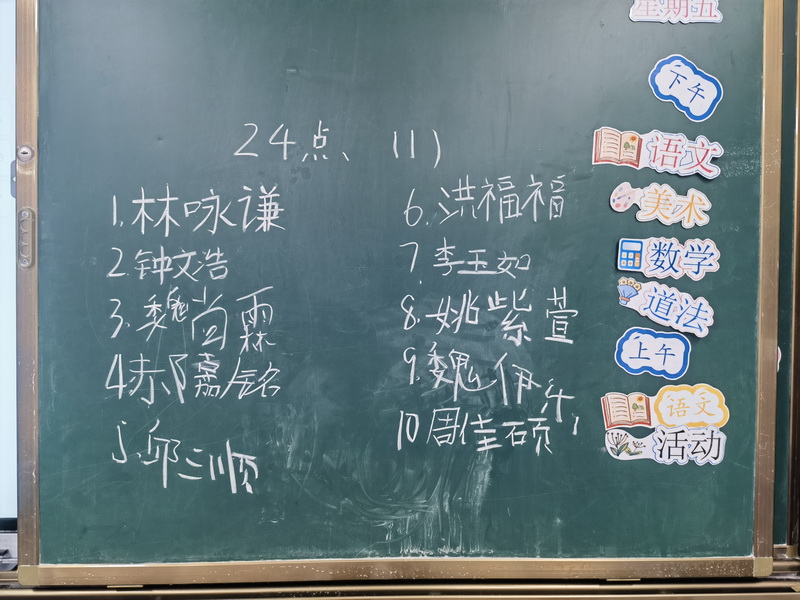 24点、(1)
1.林咏谦
2.钟文浩
3.魏尚霖
4.郝嘉铭
5.邱三顺
6.洪福福
7.李玉如
8.姚紫萱
9.魏伊
10周佳硕
星期五
下午
语文
美术
数学
道法
上午
语文
活动